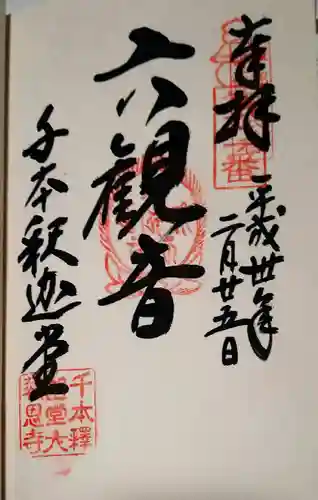 奉拝
平成卅年
二月廿五日
六観音
千本釈迦堂
千本釋
迦堂大
報恩寺